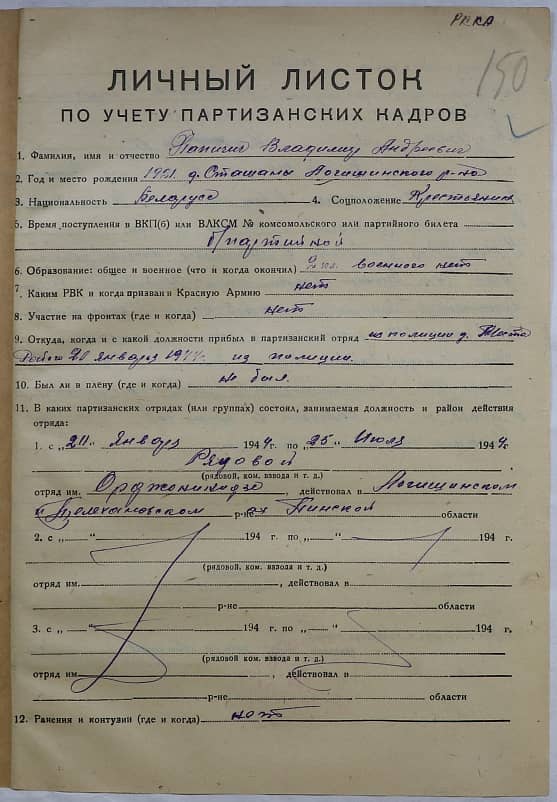 РККА
150
ЛИЧНЫЙ ЛИСТОК
ПО УЧЕТУ ПАРТИЗАНСКИХ КАДРОВ
1. Фамилия, имя и отчество Владимир Андреевич
2. Год и место рождения д. Сташаны Логишинского р-на
3. Национальность Беларусс 4. Соцположение Крестьянин
5. Время поступления в ВКП(б) или ВЛКСМ № комсомольского или партийного билета
б/партийной
6. Образование: общее и военное (что и когда окончил) военного нет
7. Каким РВК и когда призван в Красную Армию нет
8. Участие на фронтах (где и когда) нет
9. Откуда, когда и с какой должности прибыл в партизанский отряд из полиции д.
20 января 1944 из полиции.
10. Был ли в плену (где и когда) не был.
11. В каких партизанских отрядах (или группах) состоял, занимаемая должность и район действия
отряда:
1. с „20“ Января 1944 г. по „25“ Июля 1944 г.
Рядовой
(рядовой, ком. взвода и т. д.)
отряд им. Орджоникидзе, действовал в Логишинском
и Телехановском р-не ах Пинской области
2. с „ — “ 194 г. по „ — “ 194 г.
(рядовой, ком. взвода и т. д.)
отряд им. , действовал в
р-не области
3. с „ — “ 194 г. по „ — “ 194 г.
(рядовой, ком. взвода и т. д.)
отряд им. , действовал в
р-не области
12. Ранения и контузии (где и когда) нет